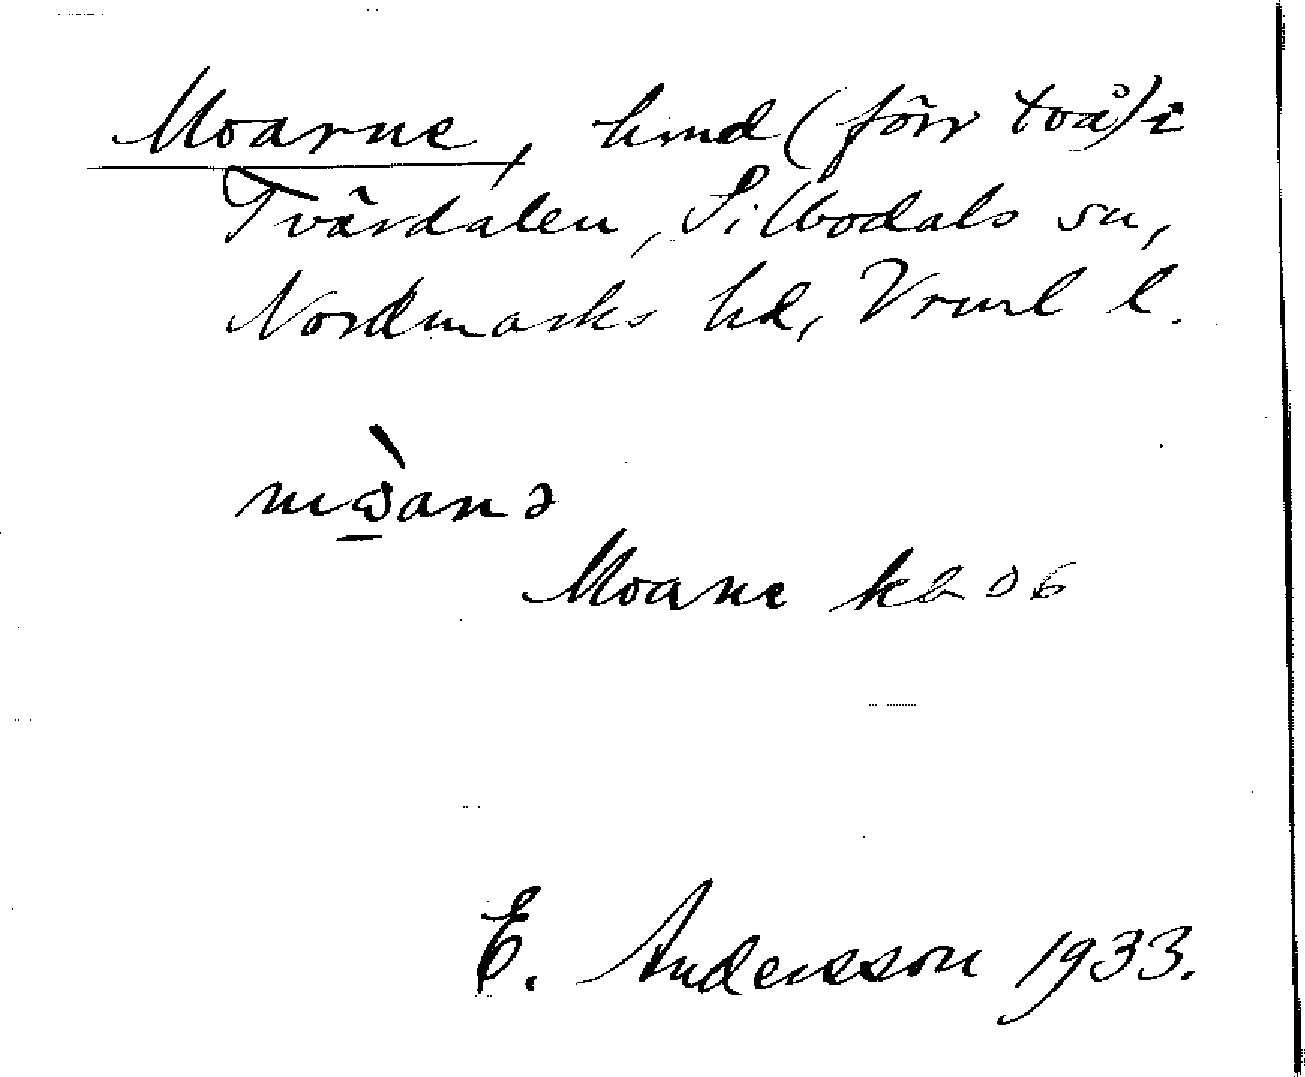 Moarne, hmd (förr två) i
Tvärdalen, Silbodals sn,
Nordmarks hd, Vrml l.
mɷ̀anə
Moane kb 06
E. Andersson 1933.